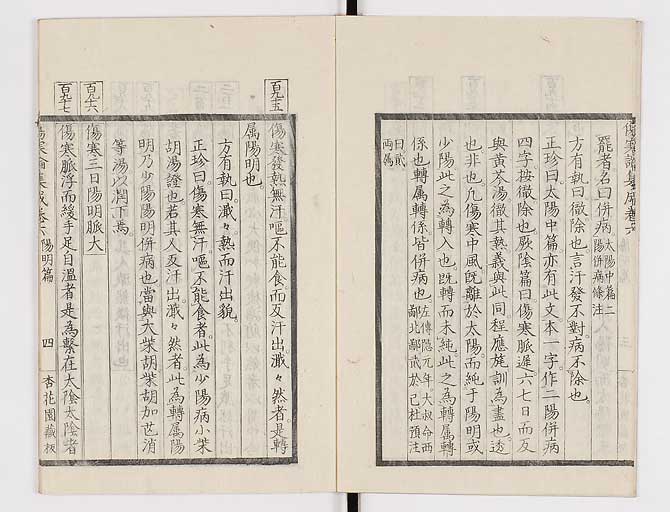 罷者名曰併病太陽中篇二陽併病條注
方有執曰徹除也言汗發不對病不除也
正珍曰太陽中篇亦有此文本一字作二陽併病
四字按徹除也厥陰篇曰傷寒脈遲六七日而反
與黃芩湯徹其熱義與此同程應旄訓為盡也透
也非也凡傷寒中風既離於太陽而純于陽明或
少陽此之為轉入也既轉而未純此之為轉屬轉
係也轉屬轉係皆併病也左傳隱元年大叔命西鄙北鄙貳於己杜預注
曰貳兩屬
百九十五
傷寒發熱無汗嘔不能食而反汗出濈々然者是轉
屬陽明也
方有執曰濈々熱而汗出貌
正珍曰傷寒無汗嘔不能食者此為少陽病小柴
胡湯證也若其人反汗出濈々然者此為轉屬陽
明乃少陽陽明併病也當與大柴胡柴胡加芒消
等湯以潤下焉
百九十六
傷寒三日陽明脈大
百九十七
傷寒脈浮而緩手足自溫者是為繫在太陰太陰者
陽明篇
四
杏花園藏板